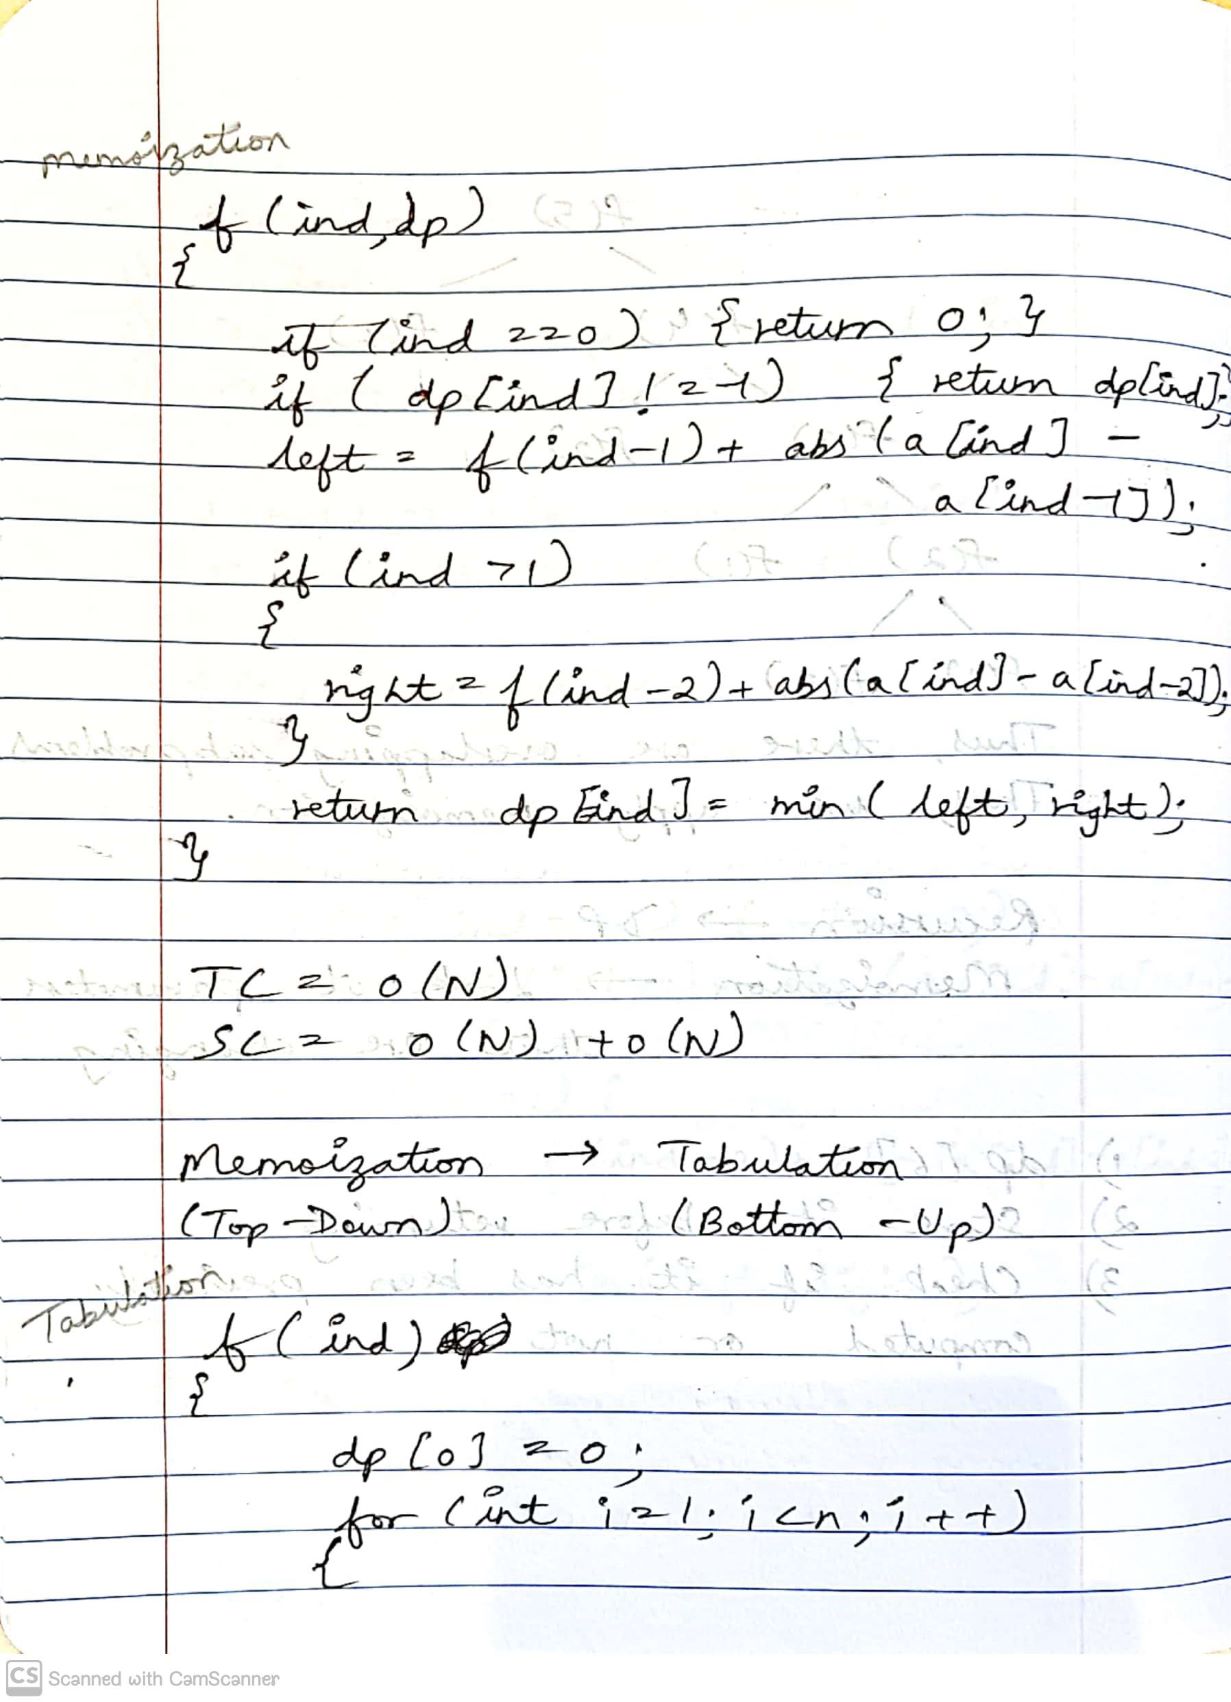 memoization
f (ind, dp)
{
if (ind == 0) { return 0; }
if ( dp [ind] != -1) { return dp[ind];
left = f (ind-1) + abs (a [ind] -
a [ind-1]);
if (ind >1)
{
right = f (ind -2) + abs (a [ind] - a [ind-2]);
}
return dp [ind] = min ( left, right);
}
TC = O (N)
SC = O (N) + O (N)
Memoization → Tabulation
(Top-Down) (Bottom -Up)
Tabulation
f ( ind )
{
dp [0] = 0;
for (int i=1; i<n; i++)
{
CS Scanned with CamScanner